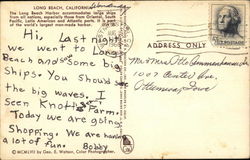 LONG BEACH, CALIFORNIA
The Long Beach Harbor accommodates large ships
from all nations, especially those from Oriental, South
Pacific, Latin American and Atlantic ports. It is one
of the world's largest man-made harbor.
Hi, Last night
we went to Long
Beach and saw Some big
Ships. You Should see
the big waves. I
seen Knotts Farm.
Today we are going
Shopping. We are having
a lot of fun. Bobby
ADDRESS ONLY
Mr & Mrs Otto
1007 Center Ave.
Ottumwa, Iowa
© MCMLVIII by Geo. E. Watson, Color Photographer